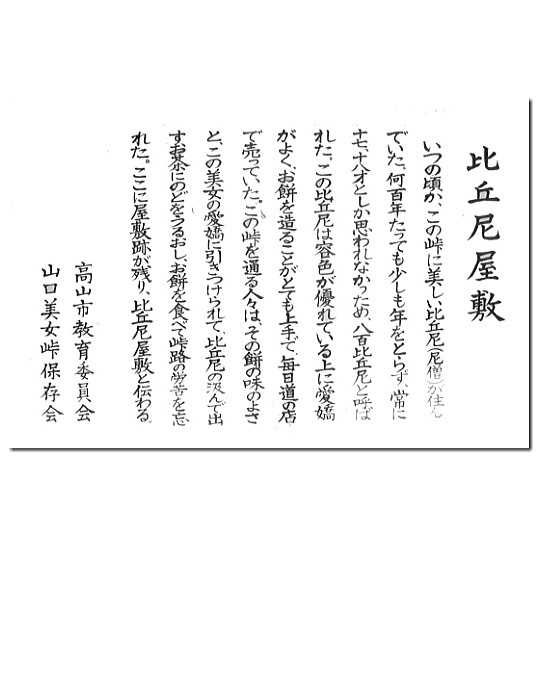 比丘尼屋敷
いつの頃か、この峠に美しい比丘尼(尼僧)が住ん
でいた。何百年たっても少しも年をとらず、常に
十七、十八才としか思われなかっため、八百比丘尼と呼ば
れた。この比丘尼は容色が優れている上に愛嬌
がよく、お餅を造ることがとても上手で、毎日道の店
で売っていた。この峠を通る人々は、その餅の味のよさ
と、この美女の愛嬌に引きつけられて、比丘尼の汲んで出
すお茶にのどをうるおし、お餅を食べて峠路の労苦を忘
れた。ここに屋敷跡が残り、比丘尼屋敷と伝わる。
高山市教育委員会
山口美女峠保存会